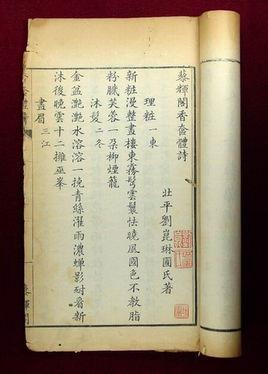 藜輝閣香奩體詩
壯平劉崑琳圃氏著
理粧一東
新粧漫整畫樓東霧髩雲鬟怯曉風國色不教脂
粉膩芙蓉一朵柳煙籠
沐髮二冬
金盆灔灔水溶溶一挽青絲濯雨濃蟬影耐看新
沐後晚雲十二擁巫峯
畫眉三江